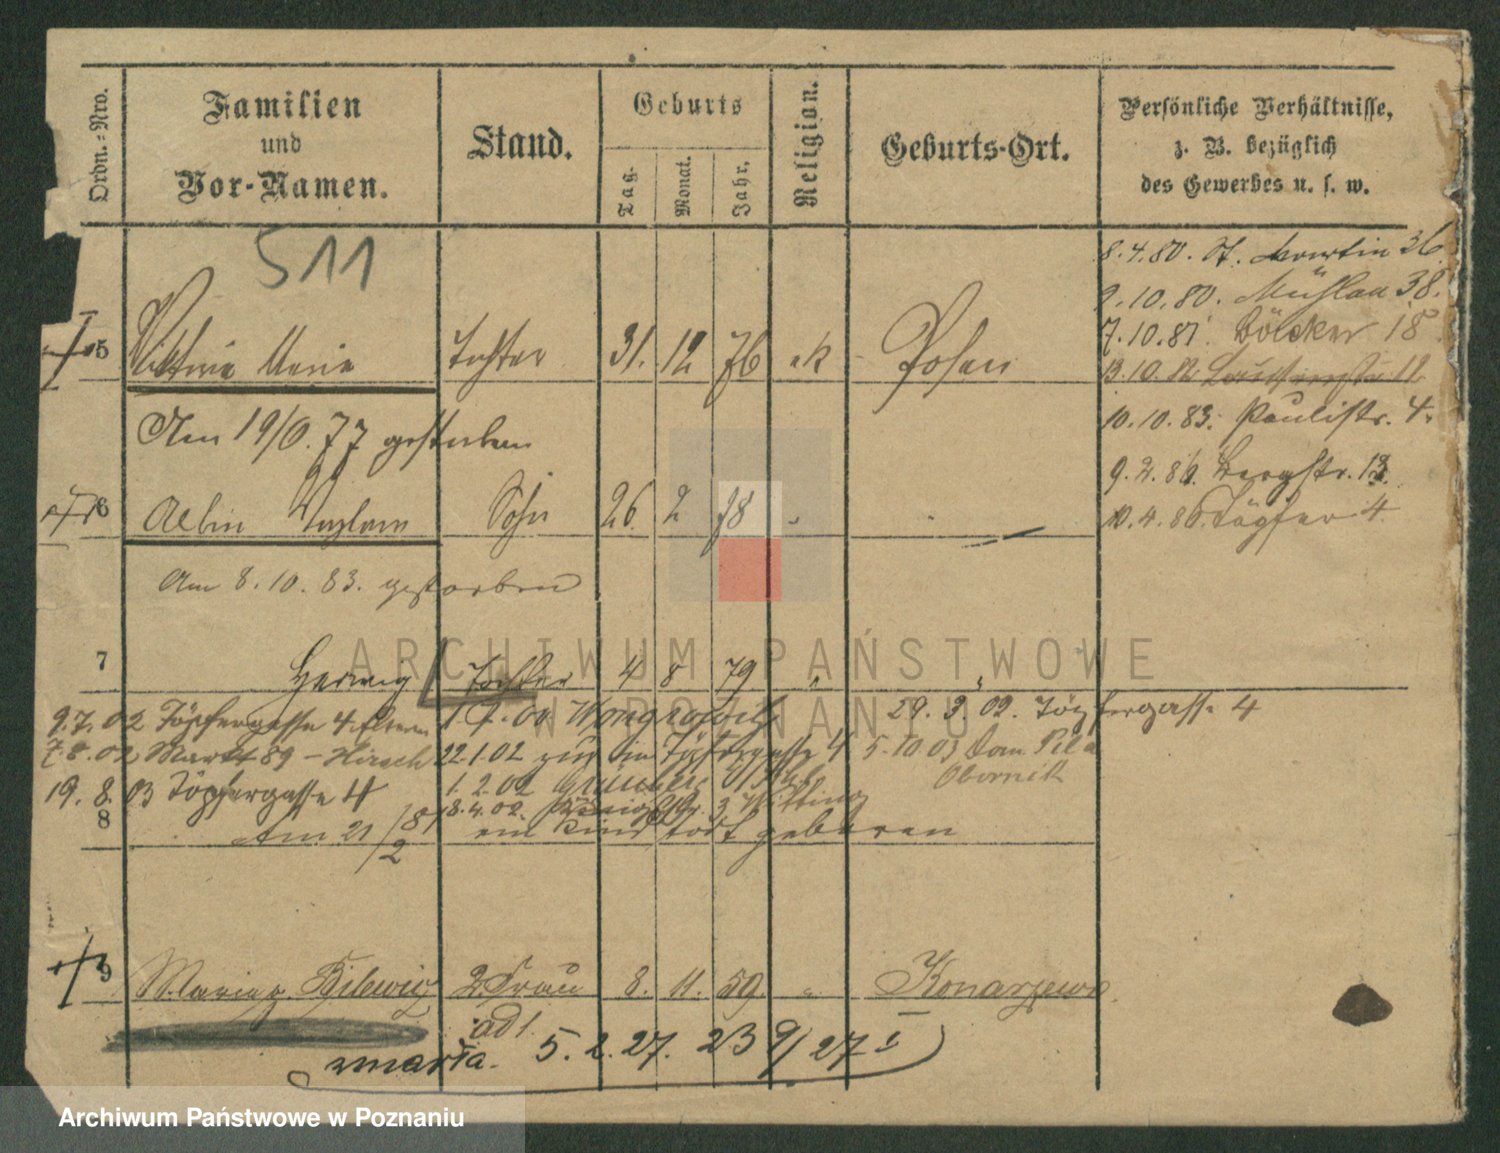 Ordn.-Nro.
Familien
und
Vor-Namen.
Stand.
Geburts
Tag.
Monat.
Jahr.
Religion.
Geburts-Ort.
Persönliche Verhältnisse,
z. B. bezüglich
des Gewerbes u. s. w.
511
8.4.80. St. Martin 36
2.10.80. 38.
7.10.81. Böcker 18
5 Viktoria Maria Tochter 31. 12 76 k Posen
13.10.
10.10.83. Paulistr. 4.
Am 19/ 77 gestorben
9.2.86. Bergstr. 13.
6 Albin Sohn 26. 2 78 "
10.4.86 Töpfer 4
Am 8.10.83. gestorben
7 Hedwig Tochter 4 8 79 "
9.7.02 Töpfergasse 4 Eltern
Wongrowitz
29.3.02. Töpfergasse 4
7.8.02 Markt 89 - Hirsch
22.1.02 Töpfergasse 4
5.10.03 Dom Pila
Obornik
19.8.03 Töpfergasse 4
1.2.02
18.4.02. 3 Witting
8 Am 21/2 81 ein Kind todt geboren
9 Maria g. Bilewicz 2. Frau 8. 11. 59. "
Konarzewo
ad 1.
zmarła. 5.2.27. 23 9/27 I
ARCHIWUM PAŃSTWOWE
W POZNANIU
Archiwum Państwowe w Poznaniu